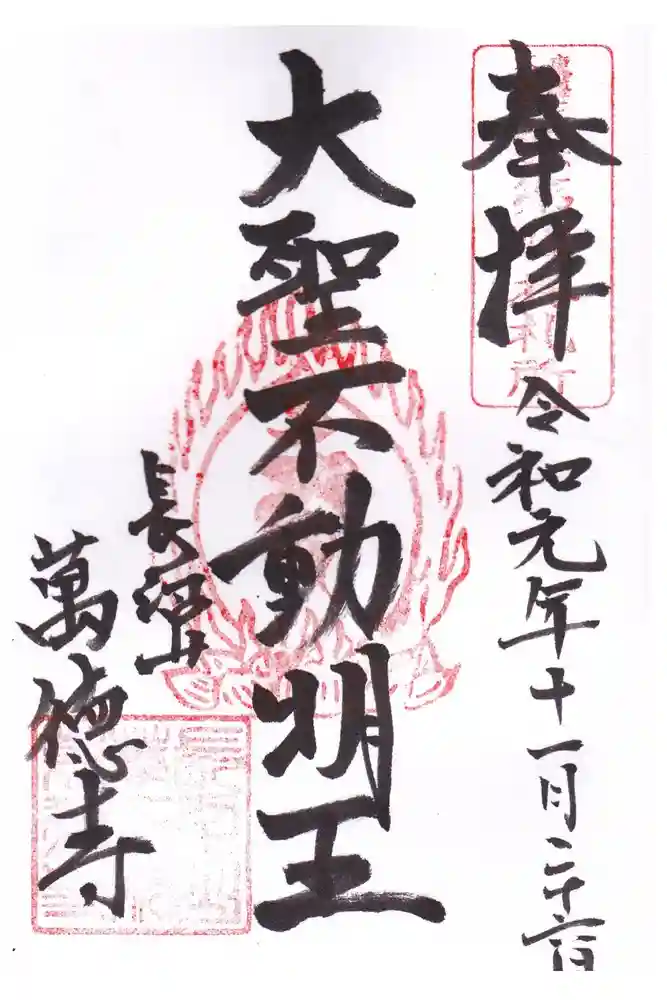 奉拝
令和元年十一月二十六日
大聖不動明王
長沼山
萬徳寺
札所